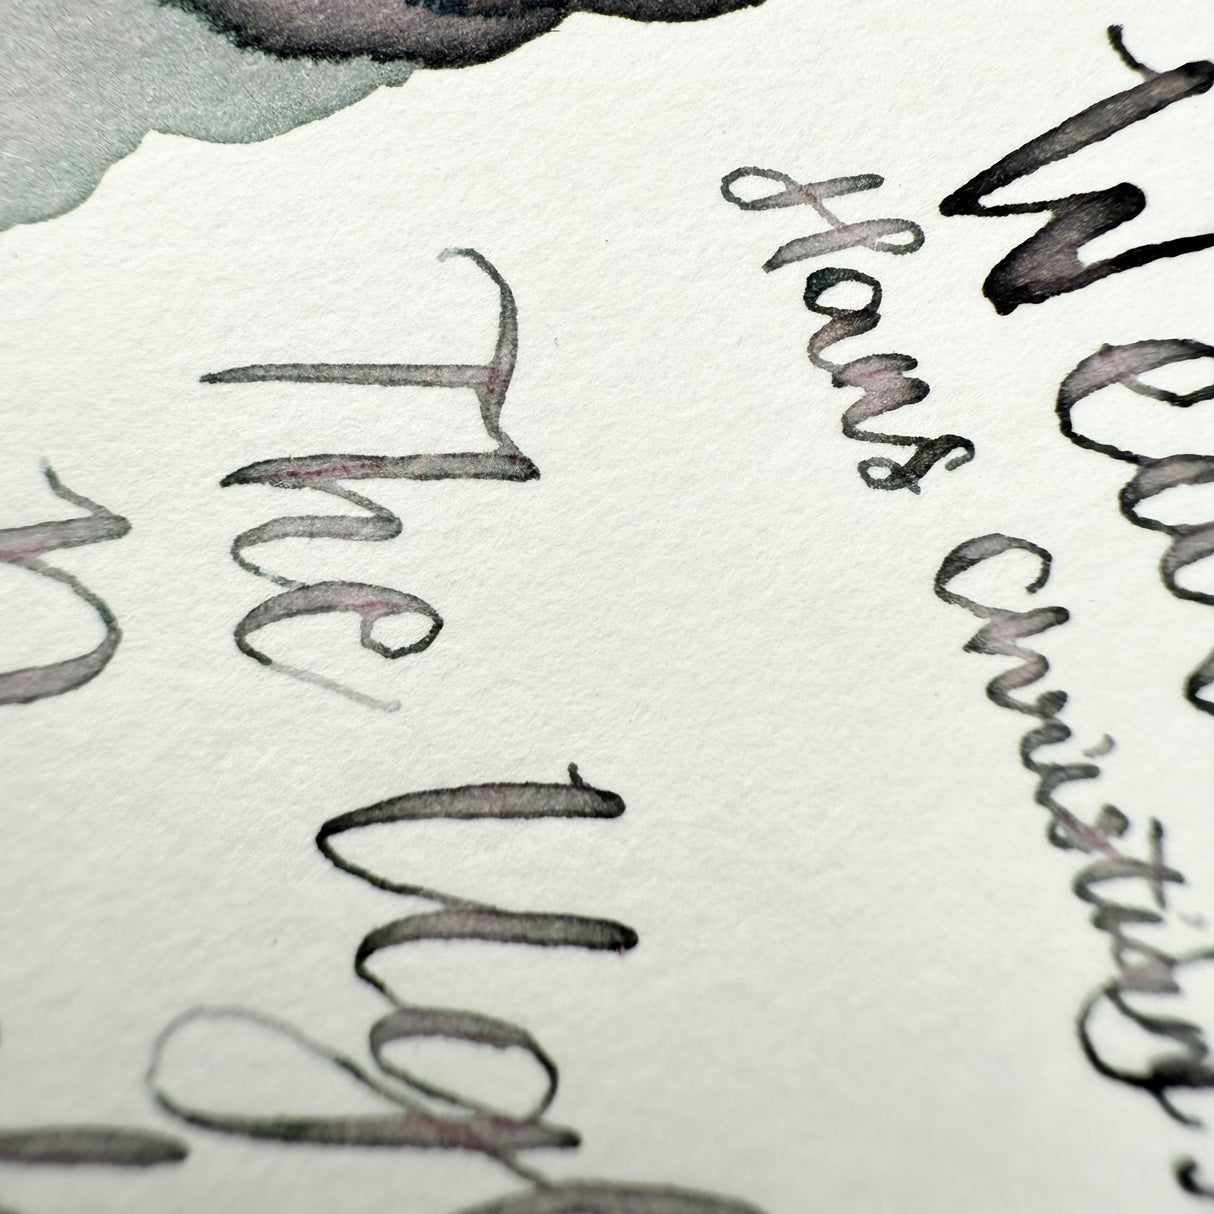 Wea
Hans Christian
The Ug